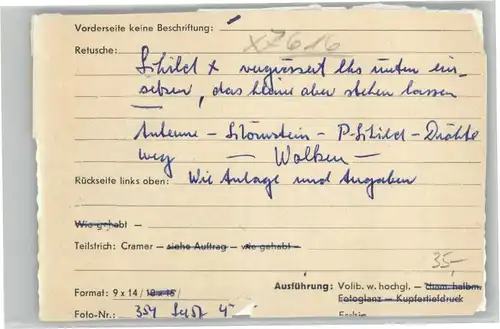 Vorderseite keine Beschriftung:
XZ616
Retusche: Schild x vergrössert lks unten ein-
setzen, das kleine aber stehen lassen
Antenne - Störnstein - P-Schild - Drähte
weg - Wolken -
Rückseite links oben: Wie Anlage und Angaben
Wie gehabt -
Teilstrich: Cramer - siehe Auftrag - wie gehabt -
35,-
Ausführung: Volib. w. hochgl. - cham. halbm.
Format: 9 x 14 / 10 x 15 / Fotoglanz - Kupfertiefdruck
Foto-Nr.: 354